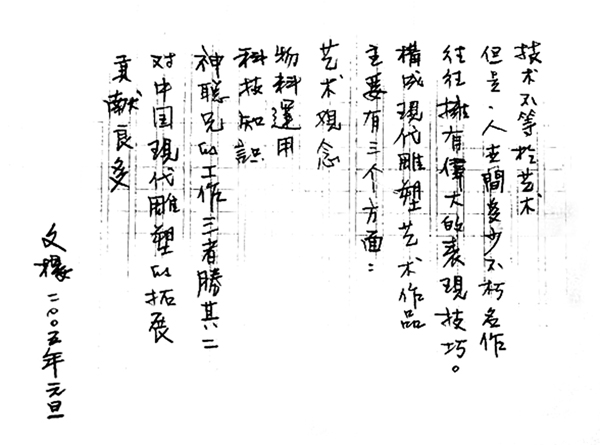 技术不等於艺术
但是、人世間多少不朽名作
往往擁有偉大的表現技巧。
構成現代雕塑艺术作品
主要有三个方面：
艺术观念
物料運用
科技知識
神聪兄的工作三者勝其二
对中国現代雕塑的拓展
貢献良多
文樓二〇〇五年元旦